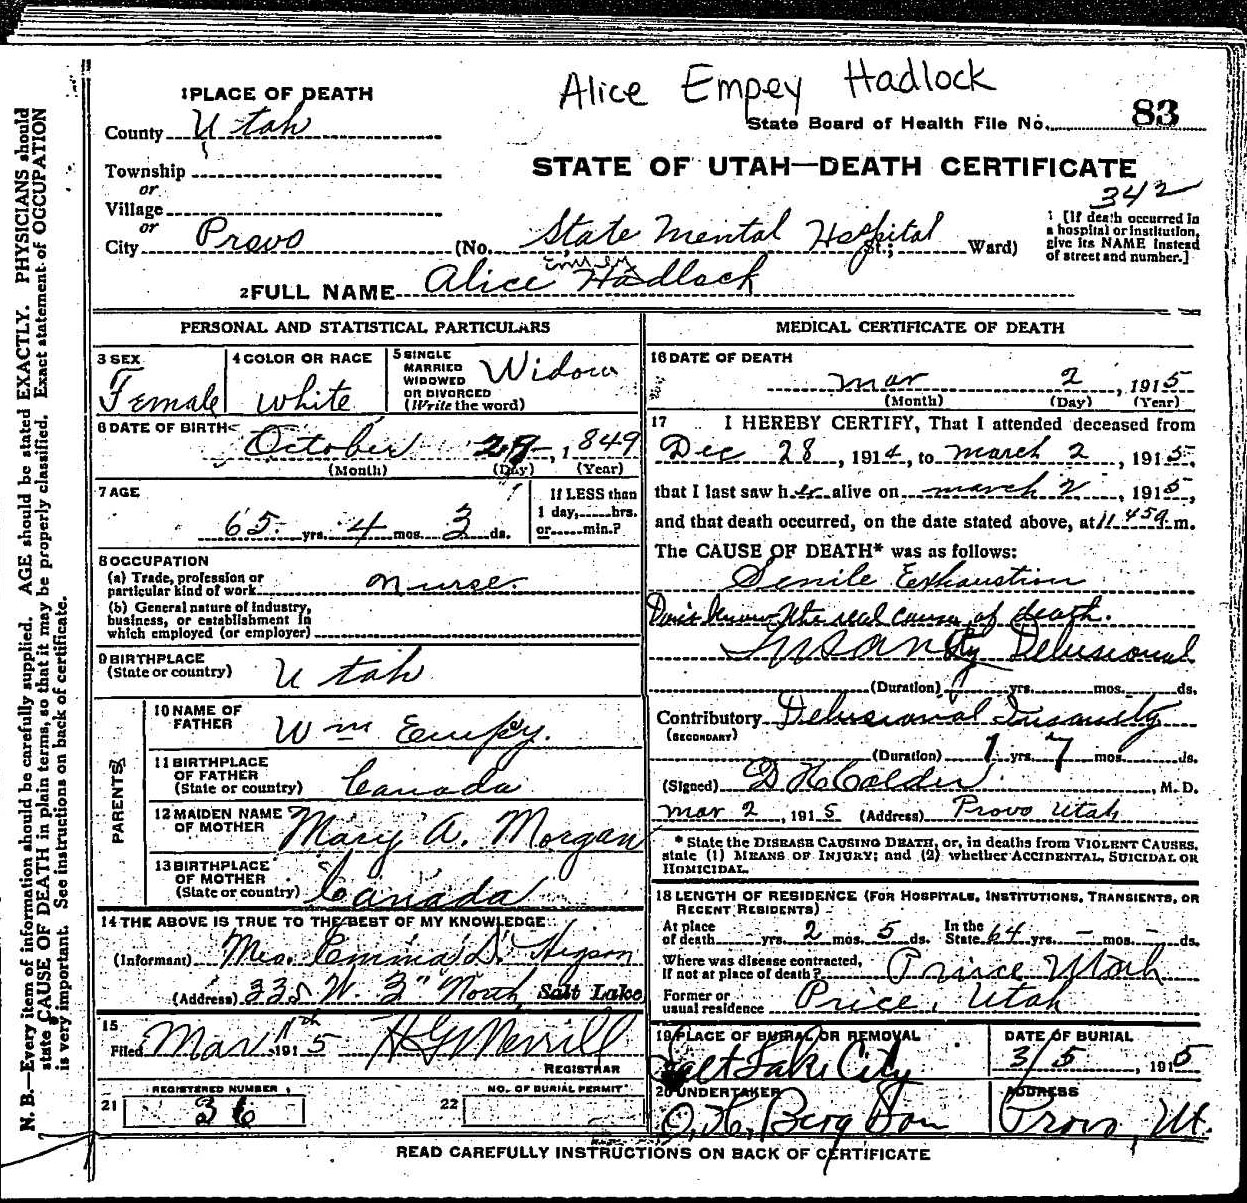 Alice Empey Hadlock
State Board of Health File No. 83
STATE OF UTAH—DEATH CERTIFICATE
342
1 PLACE OF DEATH
County Utah
Township
or
Village
or
City Provo (No. State Mental Hospital St.; Ward)
1 [If death occurred in
a hospital or institution,
give its NAME instead
of street and number.]
Empey
2 FULL NAME Alice Hadlock
PERSONAL AND STATISTICAL PARTICULARS
3 SEX
Female
4 COLOR OR RACE
White
5 SINGLE
MARRIED
WIDOWED
OR DIVORCED
(Write the word)
Widow
6 DATE OF BIRTH
October 29, 1849
(Month) (Day) (Year)
7 AGE
65 yrs. 4 mos. 3 ds.
If LESS than
1 day, hrs.
or min.?
8 OCCUPATION
(a) Trade, profession or
particular kind of work nurse.
(b) General nature of industry,
business, or establishment in
which employed (or employer)
9 BIRTHPLACE
(State or country) Utah
PARENTS
10 NAME OF
FATHER Wm Empy.
11 BIRTHPLACE
OF FATHER
(State or country) Canada
12 MAIDEN NAME
OF MOTHER Mary A. Morgan
13 BIRTHPLACE
OF MOTHER
(State or country) Canada
14 THE ABOVE IS TRUE TO THE BEST OF MY KNOWLEDGE
(Informant) Mrs. Emma D. Higson
(Address) 335 W. 3" North, Salt Lake
15
Filed Mar 11th 1915 H G Merrill
REGISTRAR
REGISTERED NUMBER
21 36
NO. OF BURIAL PERMIT
22
MEDICAL CERTIFICATE OF DEATH
16 DATE OF DEATH
Mar 2, 1915
(Month) (Day) (Year)
17 I HEREBY CERTIFY, That I attended deceased from
Dec 28, 1914, to March 2, 1915,
that I last saw her alive on March 2, 1915,
and that death occurred, on the date stated above, at 11 45 a m.
The CAUSE OF DEATH* was as follows:
Senile Exhaustion
Don't know the real cause of death.
Insanity Delusional
(Duration) yrs. mos. ds.
Contributory Delusional Insanity
(SECONDARY)
(Duration) 1 yrs. 7 mos. ds.
(Signed) D H Calder, M. D.
Mar 2, 1915 (Address) Provo Utah
* State the DISEASE CAUSING DEATH, or, in deaths from VIOLENT CAUSES,
state (1) MEANS OF INJURY; and (2) whether ACCIDENTAL, SUICIDAL OR
HOMICIDAL.
18 LENGTH OF RESIDENCE (FOR HOSPITALS, INSTITUTIONS, TRANSIENTS, OR
RECENT RESIDENTS)
At place
of death yrs. 2 mos. 5 ds. In the State 64 yrs. – mos. – ds.
Where was disease contracted,
If not at place of death? Price Utah
Former or
usual residence Price, Utah
19 PLACE OF BURIAL OR REMOVAL
Salt Lake City
DATE OF BURIAL
3/5, 1915
20 UNDERTAKER
O. H. Berg & Son
ADDRESS
Provo, Ut.
READ CAREFULLY INSTRUCTIONS ON BACK OF CERTIFICATE
N. B.—Every item of information should be carefully supplied. AGE should be stated EXACTLY. PHYSICIANS should
state CAUSE OF DEATH in plain terms, so that it may be properly classified. Exact statement of OCCUPATION
is very important. See instructions on back of certificate.